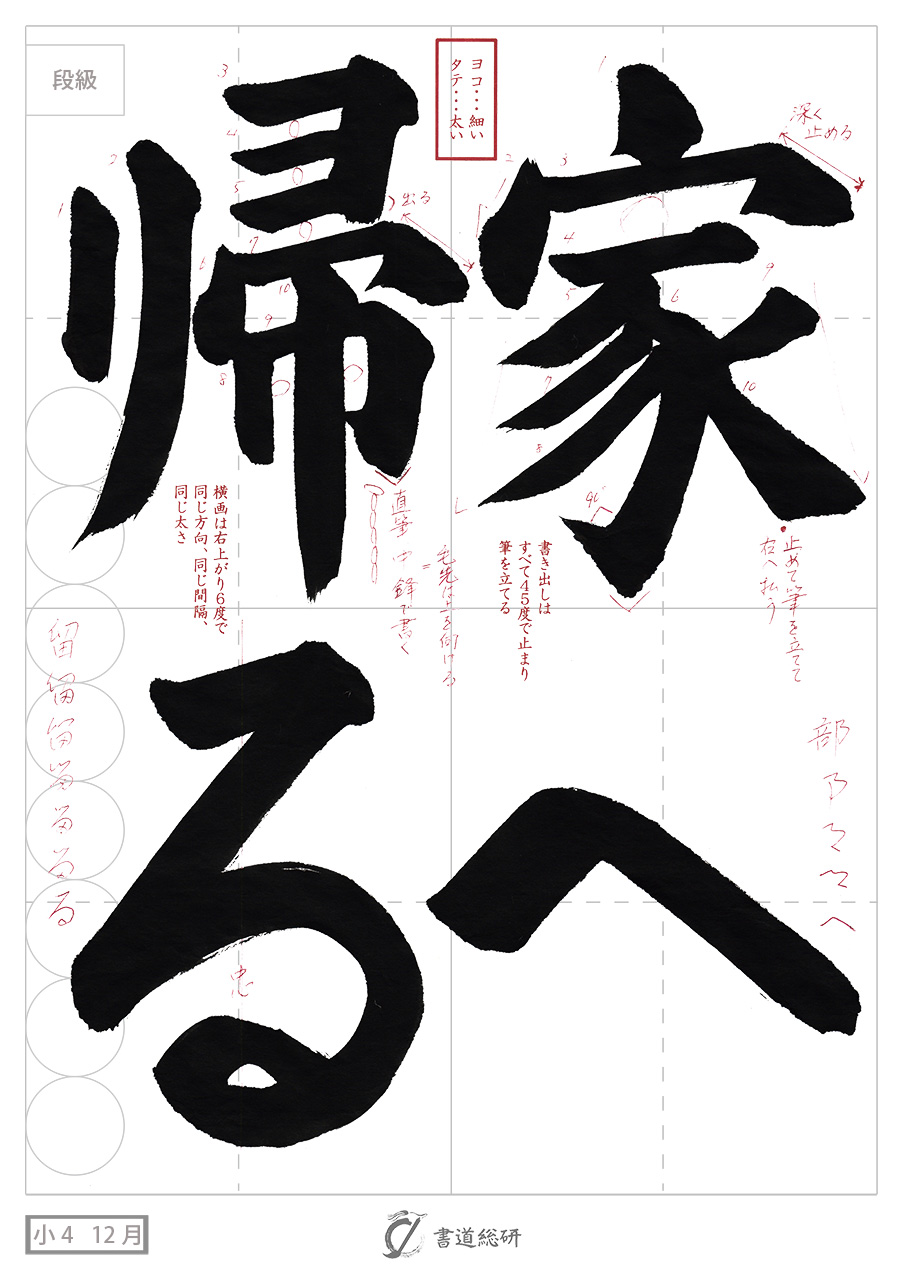 家へ
帰る
段級
ヨコ・・・細い
タテ・・・太い
深く
止める
出る
書き出しは
すべて45度で止まり
筆を立てる
横画は右上がり6度で
同じ方向、同じ間隔、
同じ太さ
直筆
中鋒で書く
毛先は上を向ける
止めて筆を立てて
右へ払う
部
へ
留
留
る
忠
小4 12月
書道総研